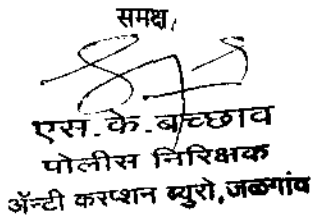 समक्ष,
एस.के.बच्छाव
पोलीस निरिक्षक
ॲन्टी करप्शन ब्युरो,जळगांव